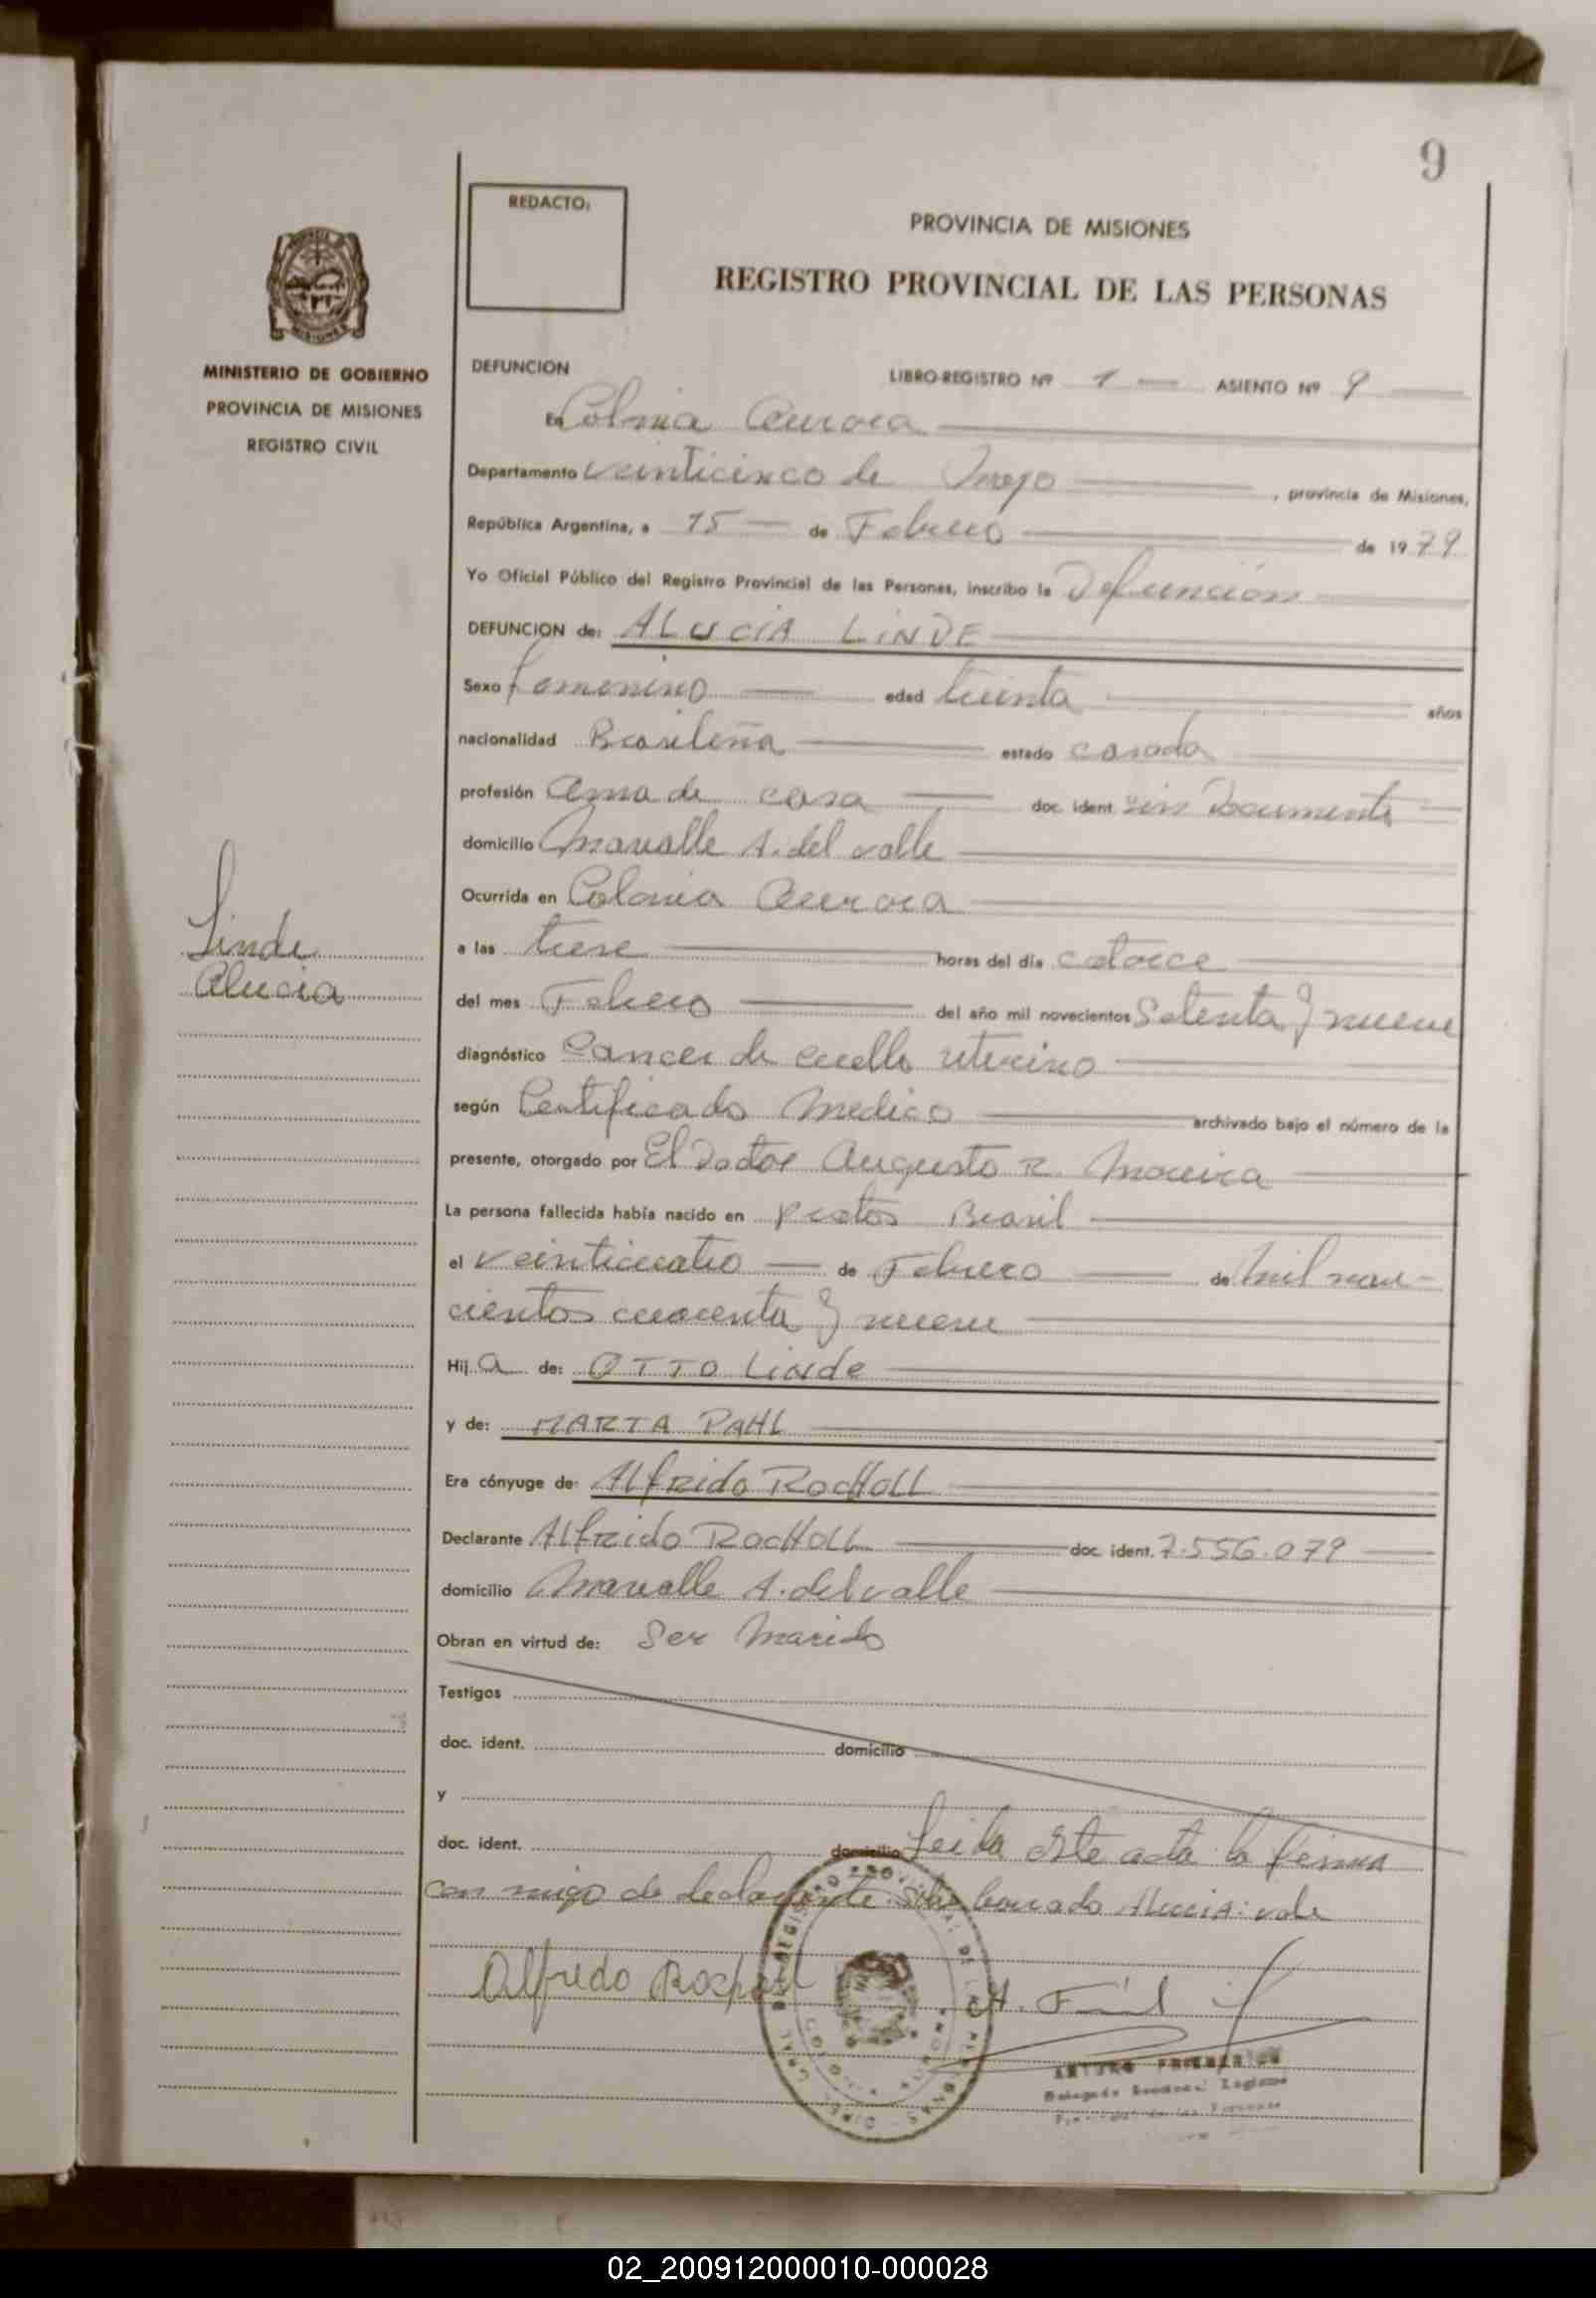 9
REDACTO:
PROVINCIA DE MISIONES
REGISTRO PROVINCIAL DE LAS PERSONAS
MINISTERIO DE GOBIERNO
PROVINCIA DE MISIONES
REGISTRO CIVIL
DEFUNCION
LIBRO-REGISTRO Nº 1 ASIENTO Nº 9
En Colonia Aurora
Departamento Veinticinco de Mayo, provincia de Misiones,
República Argentina, a 15 de Febrero de 1979
Yo Oficial Público del Registro Provincial de las Personas, inscribo la Defunción
DEFUNCION de: ALUCIA LINDE
Sexo femenino edad treinta años
nacionalidad Brasileña estado casada
profesión Ama de casa doc. ident. sin Documento
domicilio A. del valle
Ocurrida en Colonia Aurora
Linde
Alucia
a las trese horas del día catorce
del mes Febrero del año mil novecientos Setenta y nueve
diagnóstico Cancer de cuello uterino
según Certificado Medico archivado bajo el número de la
presente, otorgado por El Doctor Augusto R. Moreira
La persona fallecida había nacido en Brasil
el veinticuatro de Febrero de mil nove-
cientos cuarenta y nueve
Hija de: OTTO Linde
y de: MARTA PAHL
Era cónyuge de: Alfrido RocHoLL
Declarante Alfrido RocHoLL doc. ident. 7.556.079
domicilio A. del valle
Obran en virtud de: Ser Marido
Testigos
doc. ident. domicilio
y
doc. ident. domicilio Leida este acta la firma
con migo de declarante. Sobre borrado Alucia: vale
Alfredo
ARTURO
02_200912000010-000028